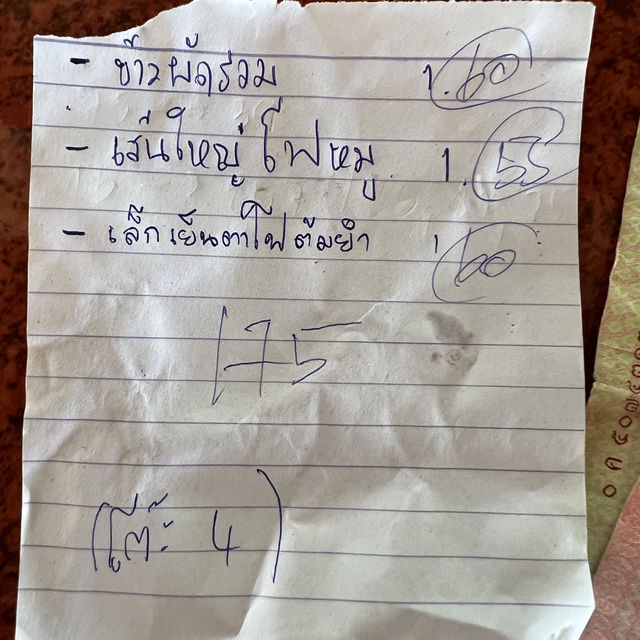 - ข้าวผัดรวม 1. 60
- เส้นใหญ่ โฟหมู 1. 55
- เล็กเย็นตาโฟต้มยำ 1 60
175
(โต๊ะ 4)
๐ค๕๐๗๕๗